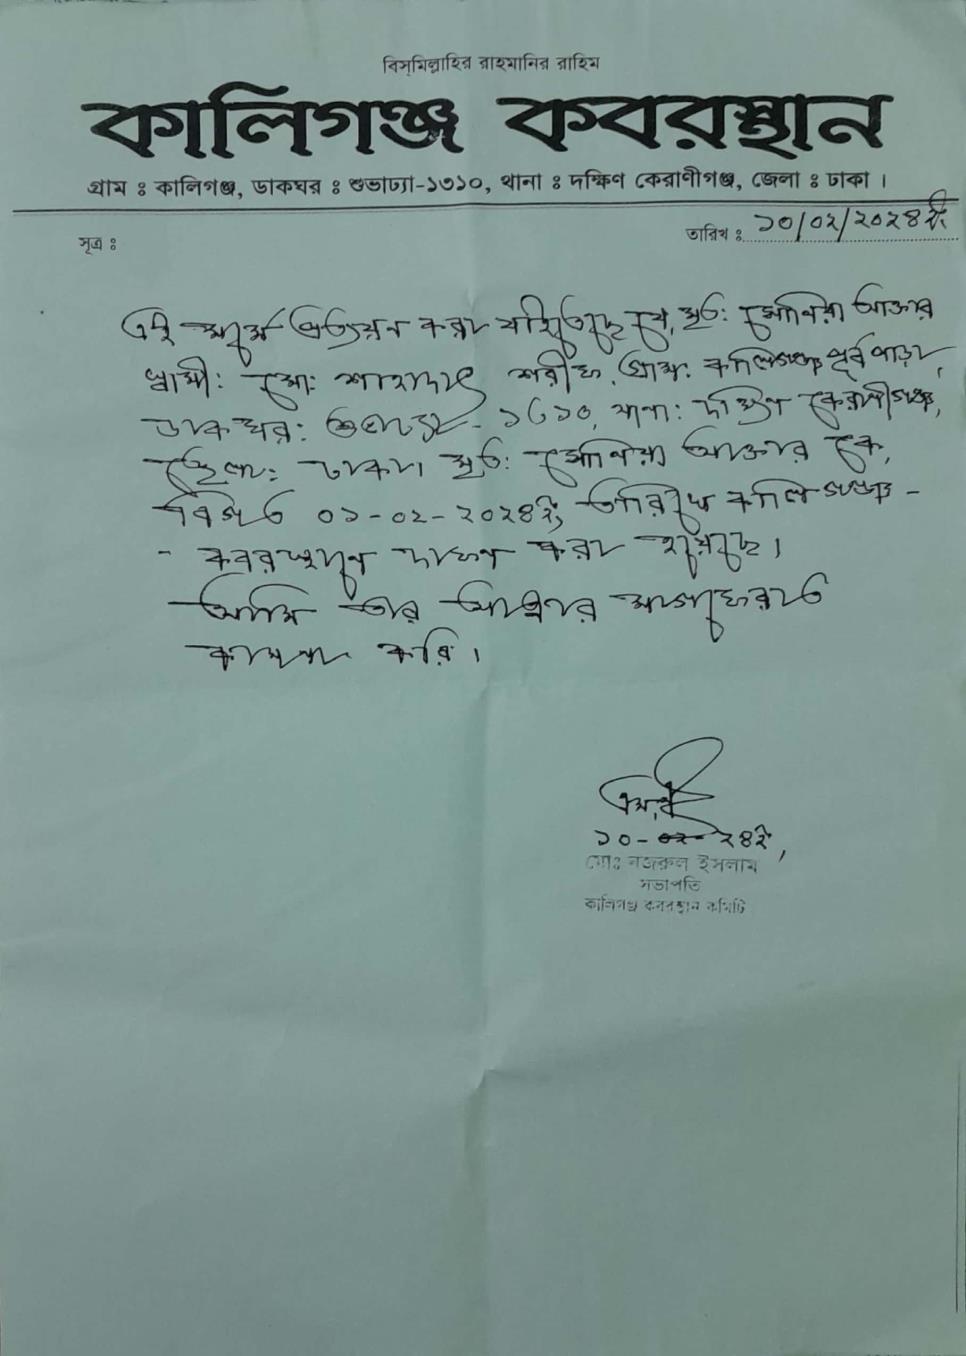 বিস্‌মিল্লাহির রাহমানির রাহিম
কালিগঞ্জ কবরস্থান
গ্রাম ঃ কালিগঞ্জ, ডাকঘর ঃ শুভাঢ্যা-১৩১০, থানা ঃ দক্ষিণ কেরাণীগঞ্জ, জেলা ঃ ঢাকা।
সূত্র ঃ
তারিখ ঃ ১০/০২/২০২৪ ইং
এই মর্মে প্রত্যয়ন করা যাইতেছে যে, মৃত: সোনিয়া আক্তার
স্বামী: মো: শাহাদাৎ শরীফ, গ্রাম: কালিগঞ্জ পূর্ব পাড়া,
ডাকঘর: শুভাঢ্যা- ১৩১০, থানা: দক্ষিণ কেরাণীগঞ্জ,
জেলা: ঢাকা। মৃত: সোনিয়া আক্তার কে,
বিগত ০১-০২-২০২৪ইং তারিখে কালিগঞ্জ -
- কবরস্থানে দাফন করা হয়েছে।
আমি তার আত্মার মাগফেরাত
কামনা করি।
১০-০২-২৪ইং
মোঃ নজরুল ইসলাম
সভাপতি
কালিগঞ্জ কবরস্থান কমিটি